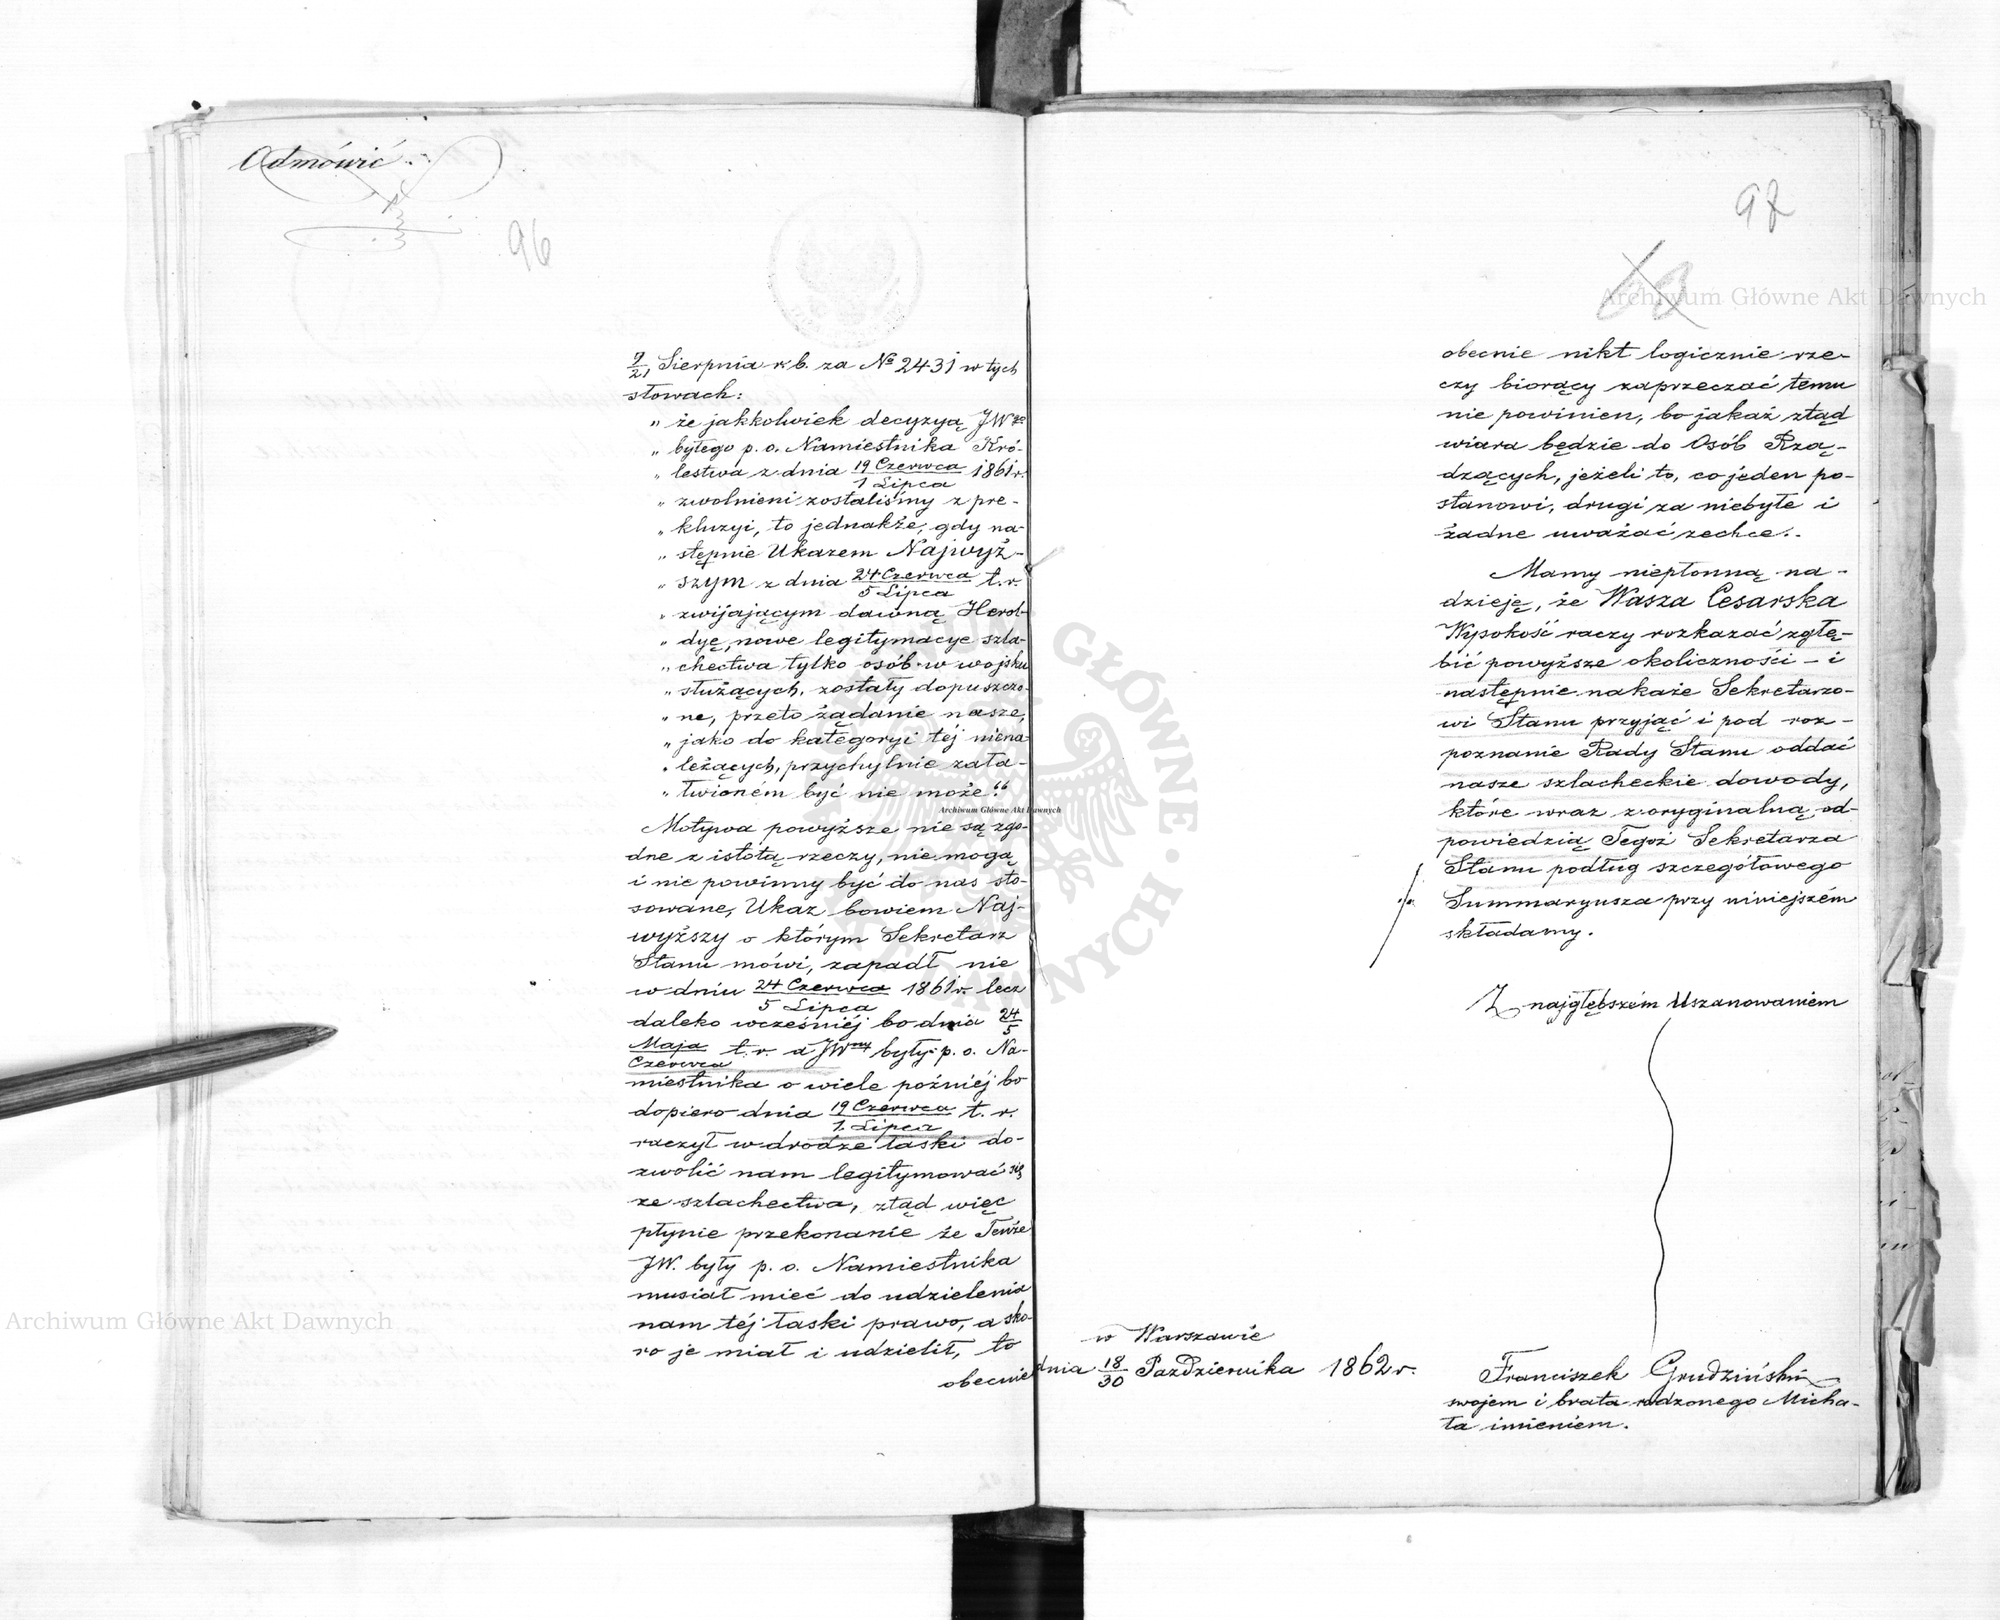 Odmówić
96
9/21 Sierpnia r. b. za № 2431 w tych
słowach:
„ że jakkolwiek decyzyą JWgo
„ byłego p. o. Namiestnika Kró-
„ lestwa z dnia 19 Czerwca / 1 Lipca 1861 r.
„ zwolnieni zostaliśmy z pre-
„ kluzyi, to jednakże, gdy na-
„ stępnie Ukazem Najwyż-
„ szym z dnia 24 Czerwca / 5 Lipca t. r.
„ zwijającym dawną Herol-
„ dyę, nowe legitymacye szla-
„ chectwa tylko osób w wojsku
„ służących, zostały dopuszczo-
„ ne, przeto żądanie nasze,
„ jako do kategoryi téj niena-
„ leżących, przychylnie zała-
„ twioném być nie może."
Motywa powyższe nie są zgo-
dne z istotą rzeczy, nie mogą
i nie powinny być do nas sto-
sowane, Ukaz bowiem Naj-
wyższy o którym Sekretarz
Stanu mówi, zapadł nie
w dniu 24 Czerwca / 5 Lipca 1861 r. lecz
daleko wcześniéj bo dnia 24/5
Maja / Czerwca t. r. a JWny były p. o. Na-
miestnika o wiele późniéj bo
dopiero dnia 19 Czerwca / 1 Lipca t. r.
raczył w drodze łaski do-
zwolić nam legitymować się
ze szlachectwa, ztąd więc
płynie przekonanie że Tenże
JW. były p. o. Namiestnika
musiał mieć do udzielenia
nam téj łaski prawo, a sko-
ro je miał i udzielił, to
obecnie
97
60
obecnie nikt logicznie rze-
czy biorący zaprzeczać temu
nie powinien, bo jakaż ztąd
wiara będzie do Osób Rzą-
dzących, jeżeli to, co jeden po-
stanowi, drugi za niebyłe i
żadne uważać zechce.
Mamy niepłonną na-
dzieję, że Wasza Cesarska
Wysokość raczy rozkazać zgłę-
bić powyższe okoliczności - i
następnie nakaże Sekretarzo-
wi Stanu przyjąć i pod roz-
poznanie Rady Stanu oddać
nasze szlacheckie dowody,
które wraz z oryginalną od-
powiedzią Tegoż Sekretarza
Stanu podług szczegółowego
Summaryusza przy niniejszém
składamy.
Z najgłębszém Uszanowaniem
w Warszawie
dnia 18/30 Października 1862 r.
Franciszek Grudziński
swojem i brata rodzonego Micha-
ła imieniem.
Archiwum Główne Akt Dawnych
Archiwum Główne Akt Dawnych
Archiwum Główne Akt Dawnych